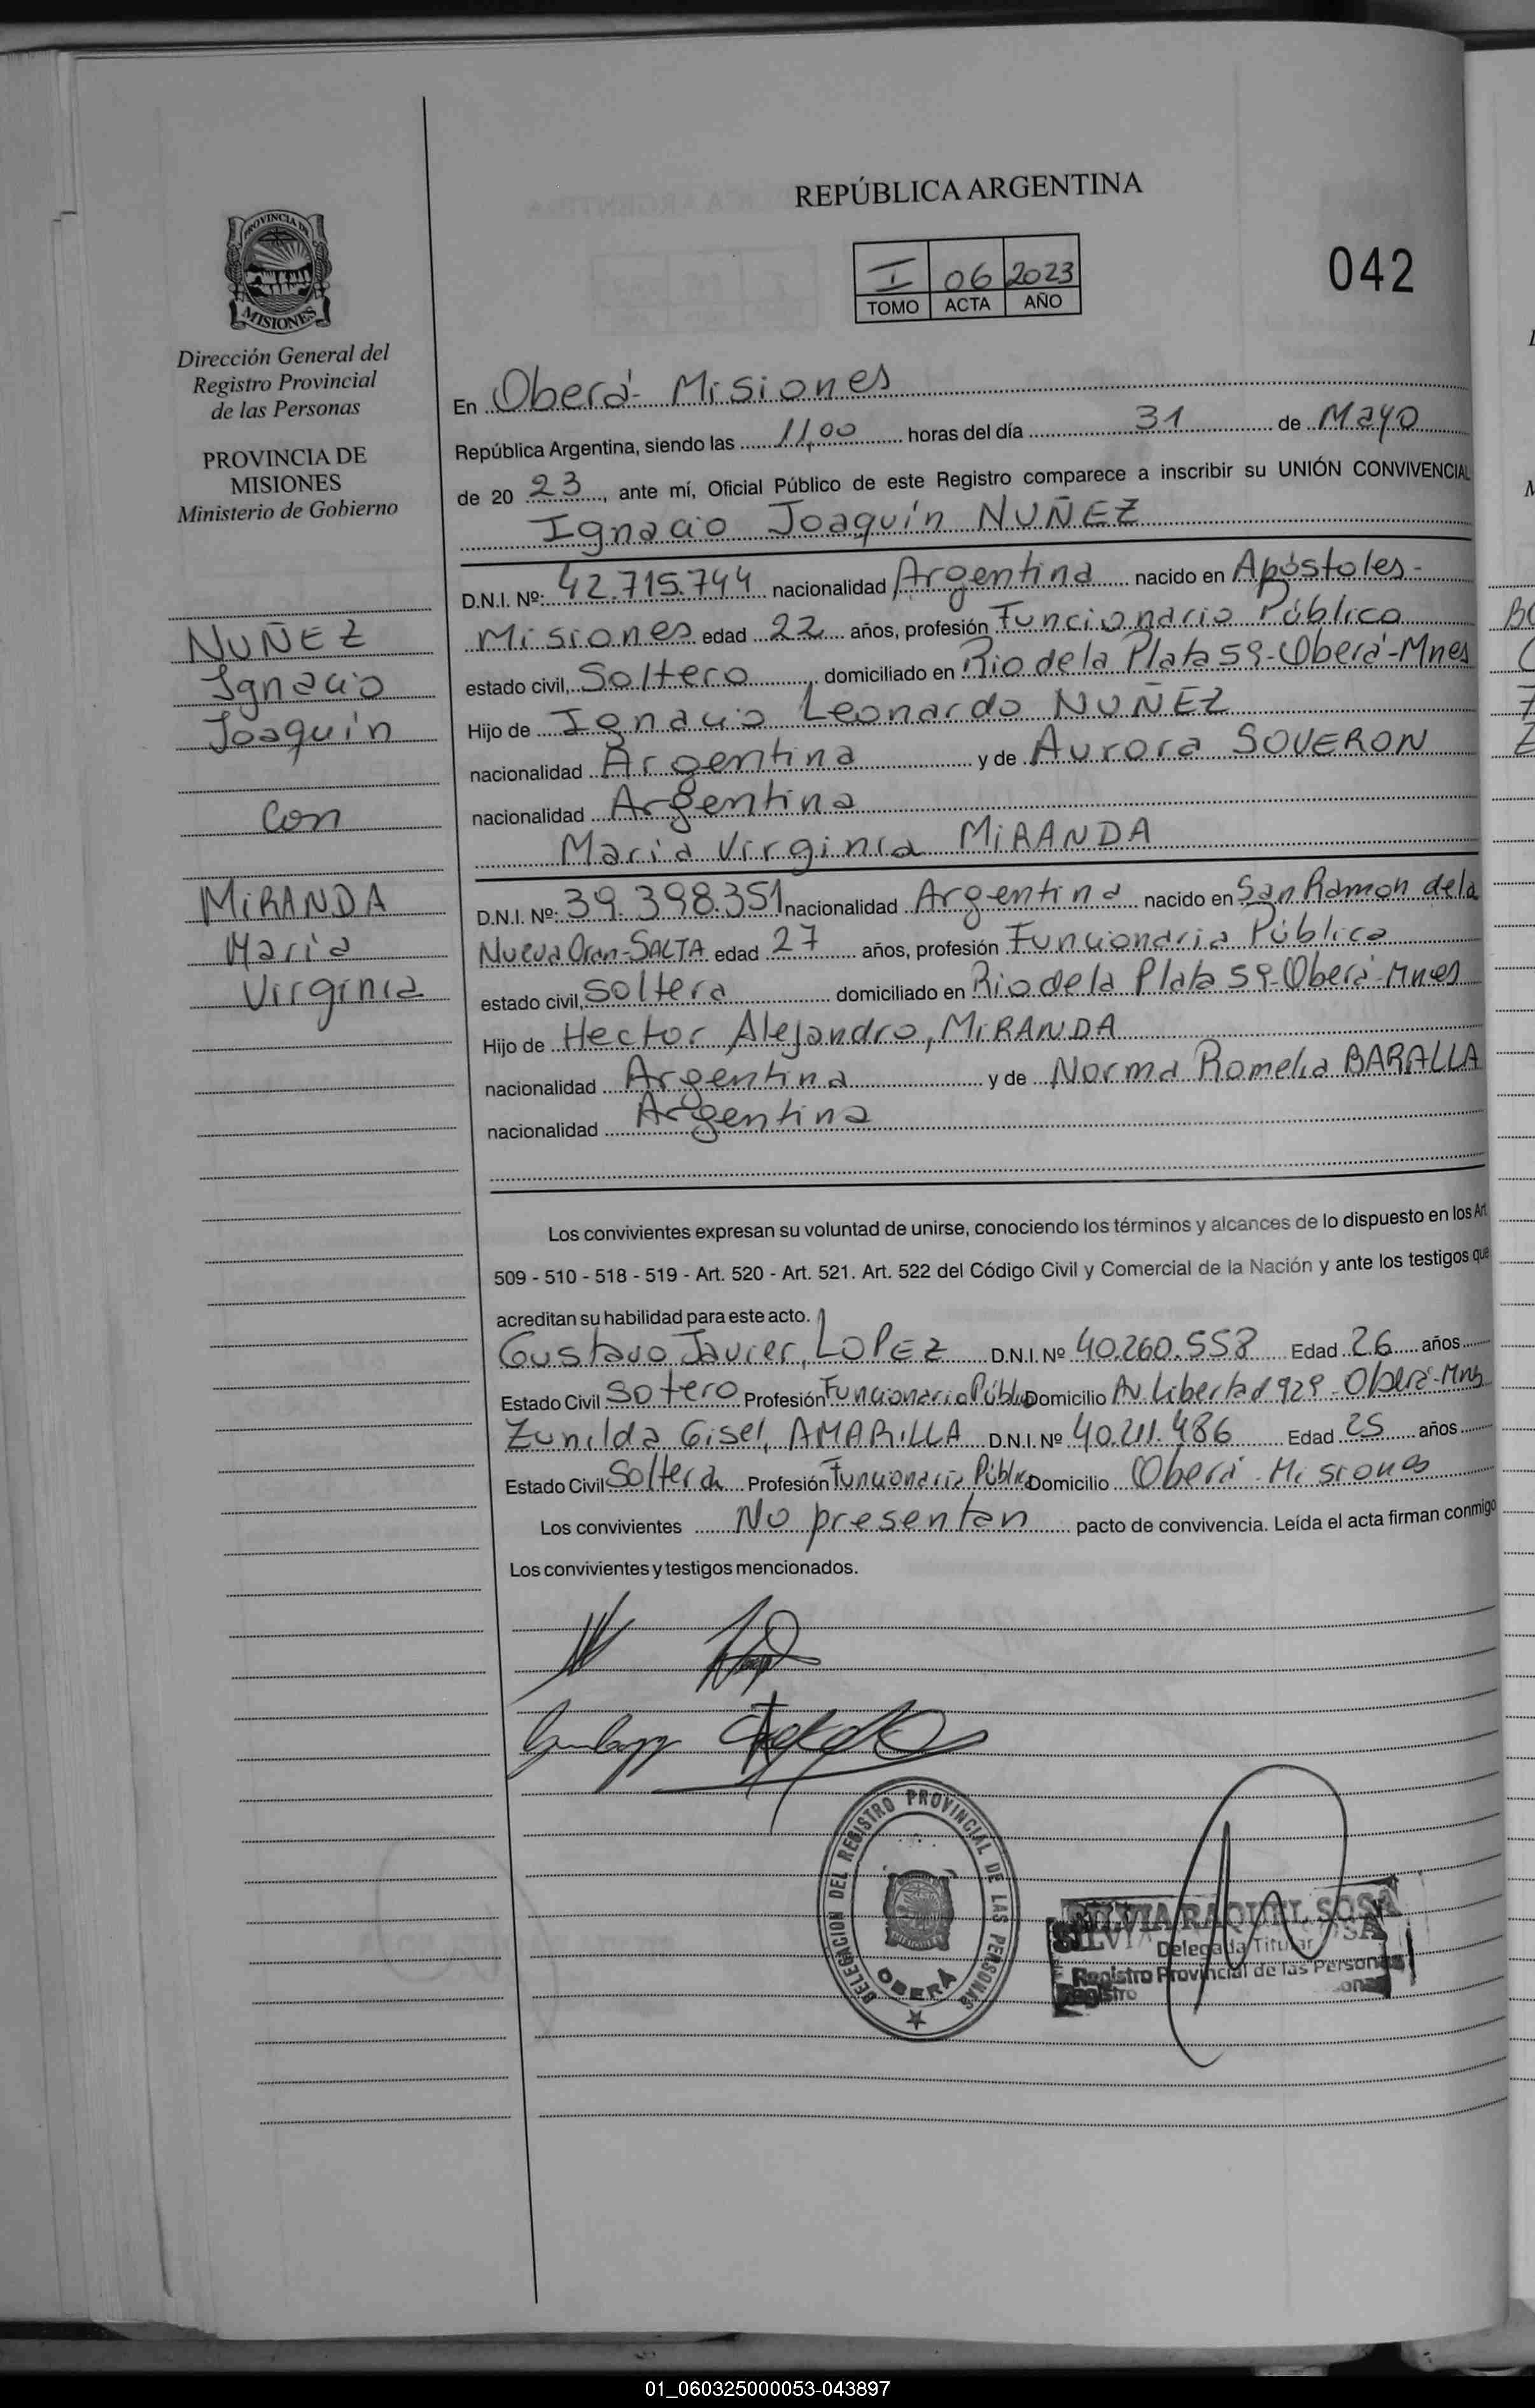 REPÚBLICA ARGENTINA
I 06 2023
TOMO ACTA AÑO
042
PROVINCIA DE
MISIONES
Dirección General del
Registro Provincial
de las Personas
PROVINCIA DE
MISIONES
Ministerio de Gobierno
NUÑEZ
Ignacio
Joaquín
Con
MiRANDA
María
Virginia
En Oberá- Misiones
República Argentina, siendo las 11,00 horas del día 31 de Mayo
de 20 23, ante mí, Oficial Público de este Registro comparece a inscribir su UNIÓN CONVIVENCIAL
Ignacio Joaquín NUÑEZ
D.N.I. Nº: 42.715.744 nacionalidad Argentina nacido en Apóstoles-
Misiones edad 22 años, profesión Funcionario Público
estado civil, Soltero domiciliado en Rio de la Plata 59-Oberá-Mnes
Hijo de Ignacio Leonardo NUÑEZ
nacionalidad Argentina y de Aurora SOVERON
nacionalidad Argentina
Maria Virginia MiRANDA
D.N.I. Nº: 39.398.351 nacionalidad Argentina nacido en San Ramon de la
Nueva Oran-SALTA edad 27 años, profesión Funcionaria Pública
estado civil, Soltera domiciliado en Rio de la Plata 59-Oberá-Mnes
Hijo de Hector Alejandro, MiRANDA
nacionalidad Argentina y de Norma Romelia BARALLA
nacionalidad Argentina
Los convivientes expresan su voluntad de unirse, conociendo los términos y alcances de lo dispuesto en los Art.
509 - 510 - 518 - 519 - Art. 520 - Art. 521. Art. 522 del Código Civil y Comercial de la Nación y ante los testigos que
acreditan su habilidad para este acto.
Gustavo Javier, LOPEZ D.N.I. Nº 40.260.558 Edad 26 años
Estado Civil Sotero Profesión Funcionario Público Domicilio Av. Libertad 929-Oberá-Mns
Zunilda Gisel, AMARiLLA D.N.I. Nº 40.211.486 Edad 25 años
Estado Civil Soltera Profesión Funcionaria Pública Domicilio Oberá-Misiones
Los convivientes No presentan pacto de convivencia. Leída el acta firman conmigo
Los convivientes y testigos mencionados.
DELEGACION DEL REGISTRO PROVINCIAL DE LAS PERSONAS
OBERÁ
SILVIA RAQUEL SOSA
Delegada Titular
Registro Provincial de las Personas
01_060325000053-043897